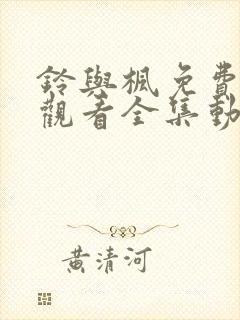 鈴與楓免費
觀看全集動
黃清河